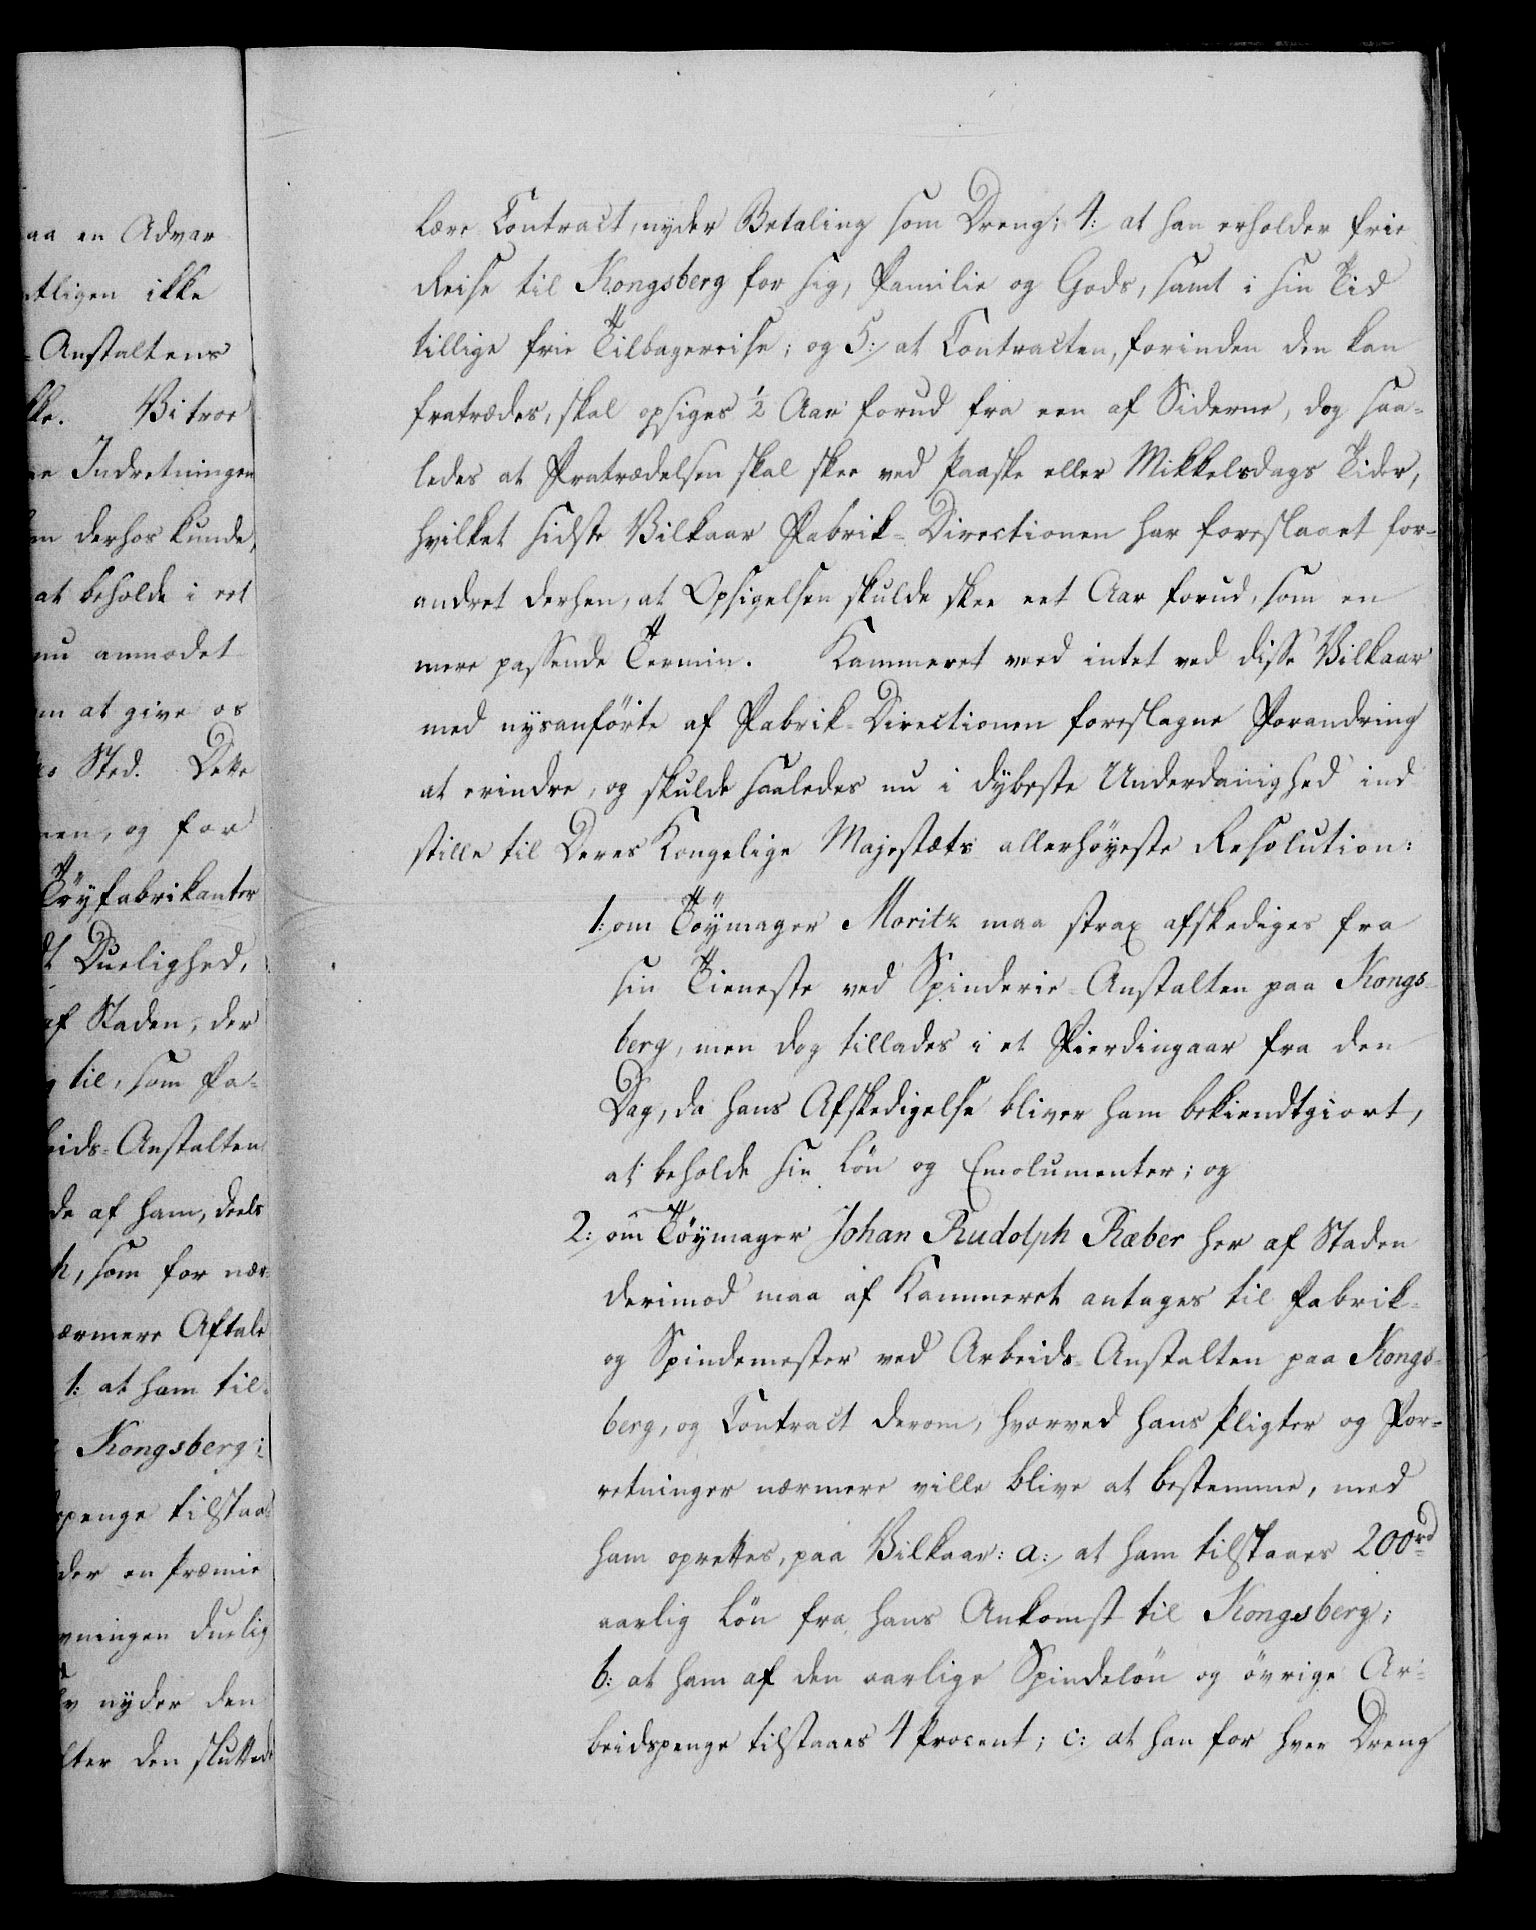 aa en Advar
ntligen ikke
-Anstaltens
kke. Vi troe
Indretningen
derhos kunde,
at beholde i eet
nu anmodet
om at give os
Sted. Dette
nen, og for
Töyfabrikanter
Duelighed,
af Staden, der
til, som Fa-
eids-Anstalten
de af ham, deels
h, som for nær-
ærmere Aftale
1: at ham til-
Kongsberg;
spenge tilstaa-
der en Præmie
vningen duelig
lv nyder den
lter den sluttede
lære Contract, nyder Betaling som Dreng; 4: at han erholder frie
Reise til Kongsberg for sig, Familie og Gods, samt i sin Tid
tillige frie Tilbagereise; og 5: at Contracten, forinden den kan
fratrædes, skal opsiges ½ Aar forud fra een af Siderne, dog saa-
ledes at Fratrædelsen skal skee ved Paaske eller Mikkelsdags Tider,
hvilket sidste Vilkaar Fabrik-Directionen har foreslaaet for-
andret derhen, at Opsigelsen skulde skee eet Aar forud, som en
mere passende Termin. Kammeret veed intet ved disse Vilkaar
med nysanförte af Fabrik-Directionen foreslagne Forandring
at erindre, og skulde saaledes nu i dybeste Underdanighed ind
stille til Deres Kongelige Majestæts allerhöyeste Resolution:
1: om Töymager Moritz maa strax afskediges fra
sin Tieneste ved Spinderie-Anstalten paa Kongs-
berg, men dog tillades i et Fierdingaar fra den
Dag, da hans Afskedigelse bliver ham bekiendtgiort,
at beholde sin Lön og Emolumenter; og
2: om Töymager Johan Rudolph Ræber her af Staden
derimod maa af Kammeret antages til Fabrik-
og Spindemester ved Arbeids-Anstalten paa Kongs-
berg, og Contract derom, hvorved hans Pligter og For-
retninger nærmere ville blive at bestemme, med
ham oprettes, paa Vilkaar: a: at ham tilstaaes 200rd
aarlig Lön fra hans Ankomst til Kongsberg;
b: at ham af den aarlige Spindelön og övrige Ar-
beidspenge tilstaaes 4 Procent; c: at han for hver Dreng